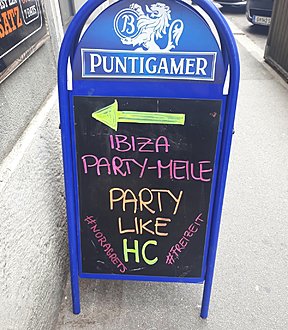 PUNTIGAMER
IBIZA
PARTY-MEILE
PARTY
LIKE
HC
#NORAGRETS
#FREIZEIT